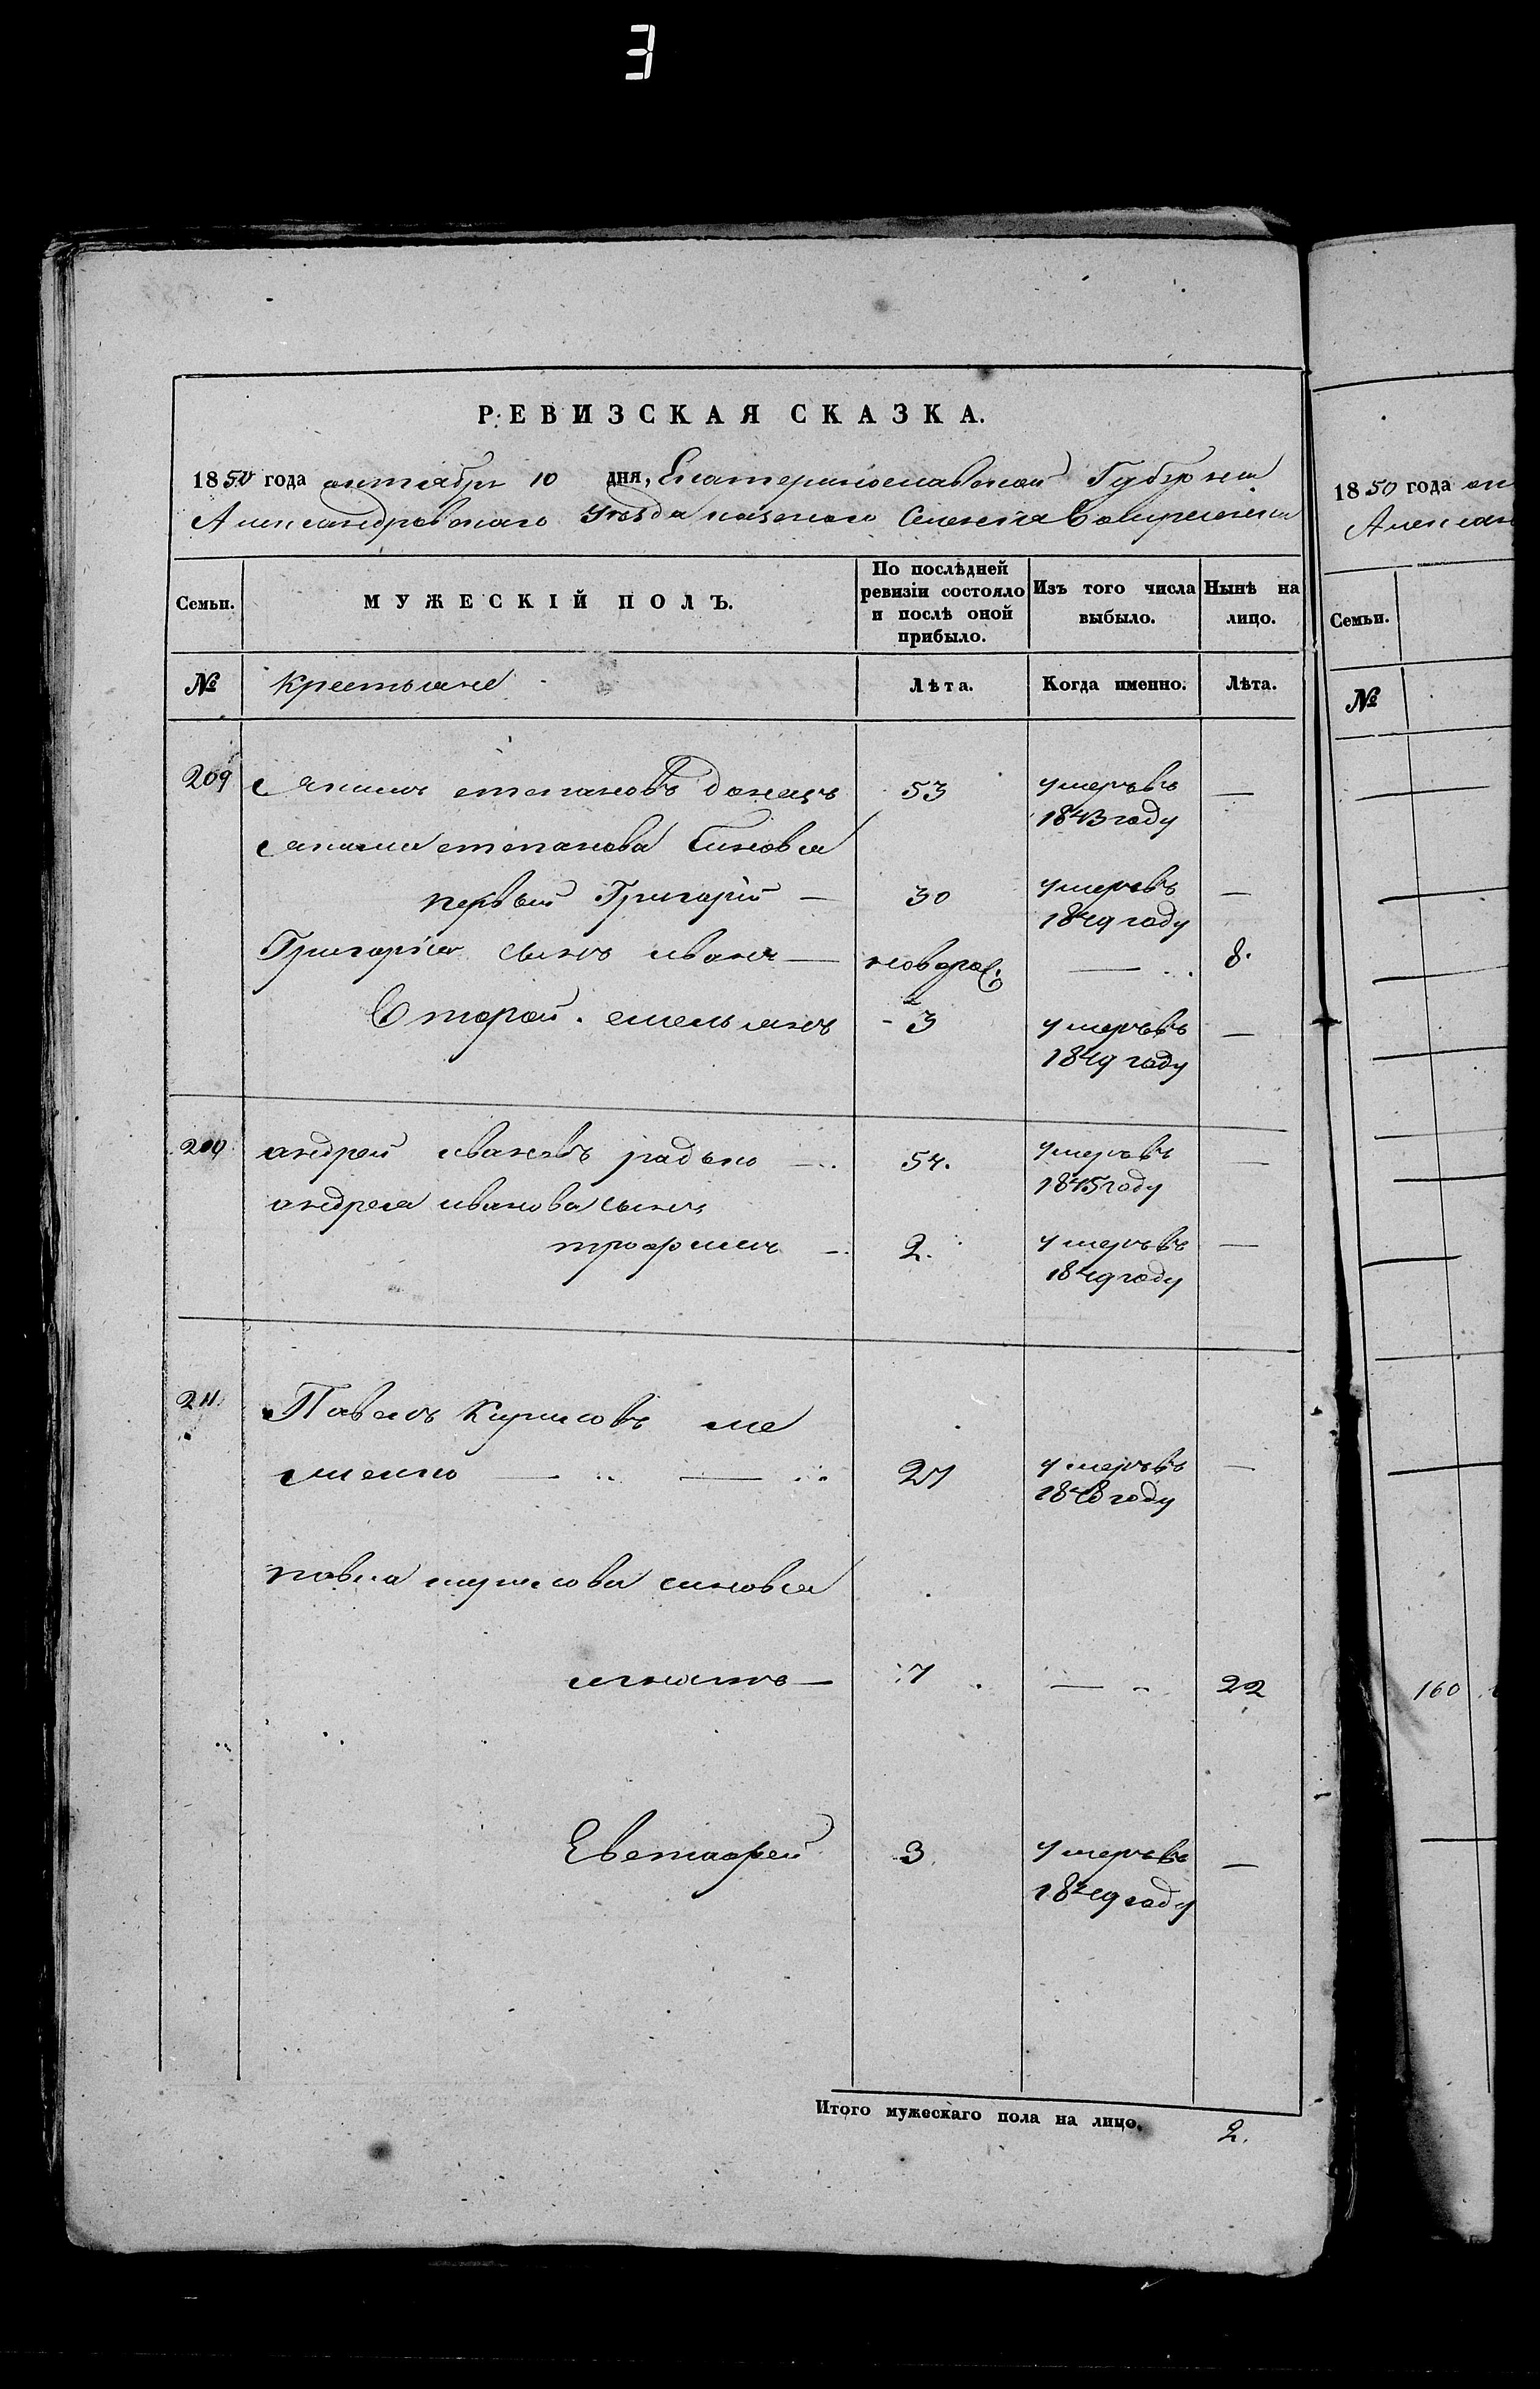 3
РЕВИЗСКАЯ СКАЗКА.
1850 года октября 10 дня, Екатеринославской Губернии
Александровскаго Уезда казенаго Селения Воскресенки
Семьи.
МУЖЕСКІЙ ПОЛЪ.
По послѣдней ревизіи состояло и послѣ оной прибыло.
Изъ того числа выбыло.
Нынѣ на лицо.
№ крестьяне Лѣта. Когда именно. Лѣта.
209 Якимъ степановъ донецъ 53 умеръвъ —
1843 году
Якима степанова синовя
первый Григорій — 30 умеръвъ —
1849 году
Григорія сынъ иванъ — новорож. — 8.
Второй емельянъ 3 умеръвъ —
1849 году
210 андрей ивановъ радько — 54. умеръвъ —
1845 году
андрея иванова сынъ
трофимъ — 2. умеръвъ —
1849 году
211. Павелъ Кириловъ
27 умеръвъ —
1848 году
павла кирилова синовя
игнатъ — 7 — 22
Евстафей 3 умеръвъ —
1849 году
Итого мужескаго пола на лицо. 2.
1850 года
Семьи.
№
160